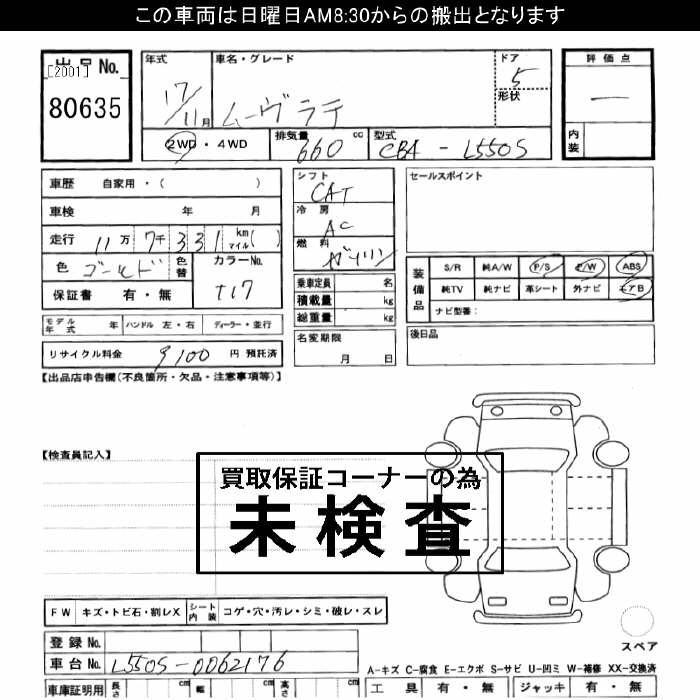 この車両は日曜日AM8:30からの搬出となります
出品No.
[2001]
80635
年式 車名・グレード ドア 評価点
17/11月 ムーヴラテ 5 —
形状
2WD・4WD 排気量 660 cc 型式 CBA - L550S 内装
車歴 自家用・( )
車検 年 月
走行 11万7千331 km マイル( )
色 ゴールド 色替 カラーNo.
保証書 有・無 T17
シフト CAT
冷房 AC
燃料 ガソリン
乗車定員 名
積載量 kg
総重量 kg
セールスポイント
装備品 S/R 純A/W P/S P/W ABS
純TV 純ナビ 革シート 外ナビ エアB
ナビ型番:
モデル年式 年 ハンドル 左・右 ディーラー・並行
名変期限 月 日
後日品
リサイクル料金 9100 円 預託済
【出品店申告欄(不良箇所・欠品・注意事項等)】
【検査員記入】
買取保証コーナーの為
未検査
FW キズ・トビ石・割レX シート内装 コゲ・穴・汚レ・シミ・破レ・スレ
スペア
登録No.
車台No. L550S-0062176
A-キズ C-腐食 E-エクボ S-サビ U-凹ミ W-補修 XX-交換済
車庫証明用 長さ cm 幅 cm 高さ cm 工具 有・無 ジャッキ 有・無